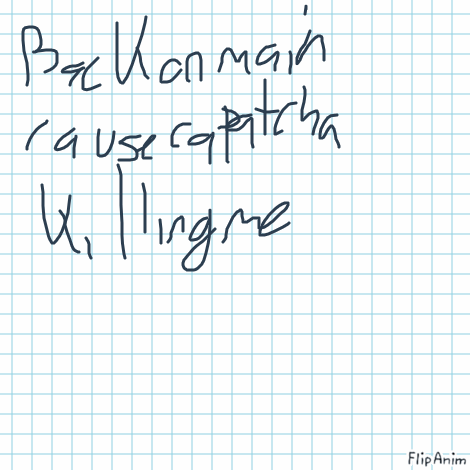 Back on main
cause capatcha
killing me
FlipAnim